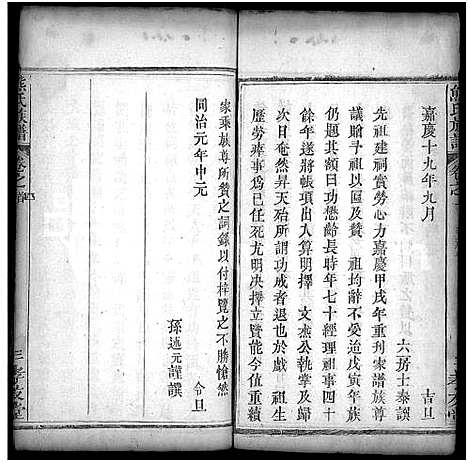 熊氏族譜
嘉慶十九年九月
吉旦
六房士泰誤
先祖建祠實勞心力嘉慶甲戌年重刊家譜族尊
議贈予祖以匾及贊 祖均辭不受迨戊寅年族
仍題其額曰功懋齡長時年七十經理祠事四十
餘年遂將帳項出入算明擇 文燕公執掌及歸
日奄然昇天殆所謂功成者退也於戲 祖生
歷勞瘁事爲已任尤明决擇立賢能今茲值重續
家乘族尊所贊之詞錄以付梓覽之不勝愴然
同治元年中元
令旦
孫述元謹譔
熊氏族譜
卷之首
三
孝友堂